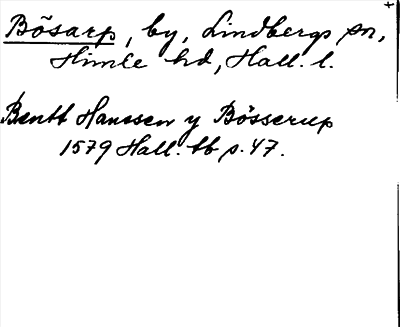 Bösarp, by, Lindbergs sn,
Himle hd, Hall. l.
Bentt Hanssen y Bösserup
1579 Hall. tb s. 47.